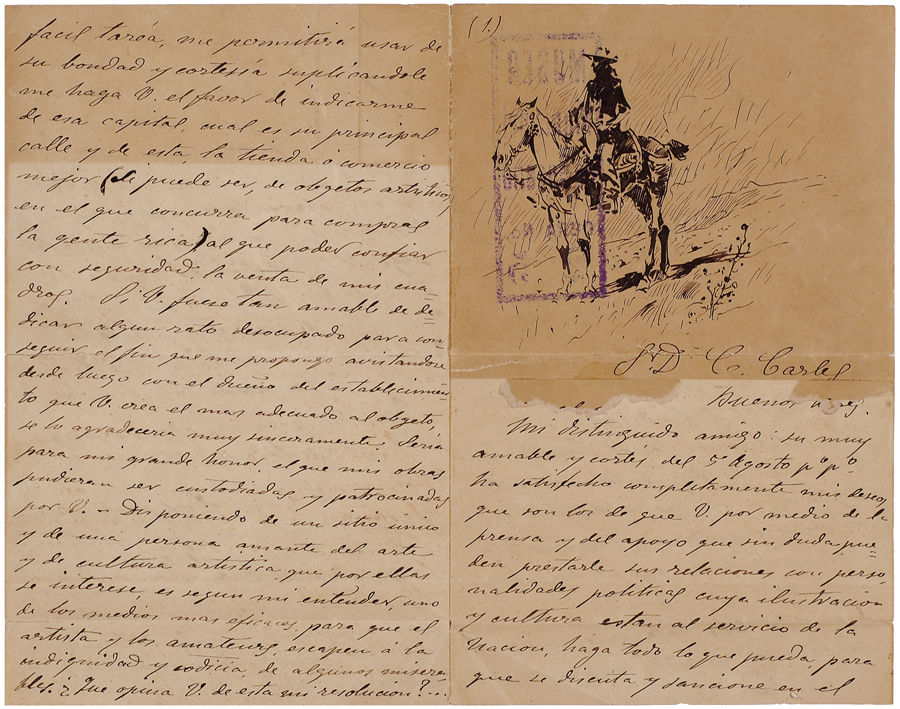 (1.)
MUSEO
Sr. Dn. C. Carles
Buenos Aires.
Mi distinguido amigo: su muy
amable y cortes del 5 Agosto pº pº
ha satisfecho completamente mis deseos
que son los de que V. por medio de la
prensa y del apoyo que sin duda pue=
den prestarle sus relaciones con perso
nalidades politicas cuya ilustracion
y cultura estan al servicio de la
Nacion, haga todo lo que pueda, para
que se discuta y sancione en el
facil taréa, me permitirá usar de
su bondad y cortesía suplicandole
me haga V. el favor de indicarme
de esa capital, cual es su principal
calle y de esta la tienda ó comercio
mejor (si puede ser, de obgetos artisticos,
en el que concurra para comprar
la gente rica) al que poder confiar
con seguridad: la venta de mis cua=
dros. Si V. fuese tan amable de de=
dicar algun rato desocupado para con=
seguir el fin que me propongo avistandose
desde luego con el dueño del establecimien
to que V. crea el mas adecuado al obgeto,
se lo agradeceria muy sinceramente. Sería
para mi grande honor, el que mis obras
pudieran ser custodiadas y patrocinadas
por V. – Disponiendo de un sitio unico
y de una persona amante del arte
y de cultura artistica, que por ellas
se interese, es segun mi entender, uno
de los medios mas eficaces, para que el
artista y los amateurs, escapen á la
indignidad y codicia, de algunos misera
bles. ¿Que opina V. de esta mi resolucion?...